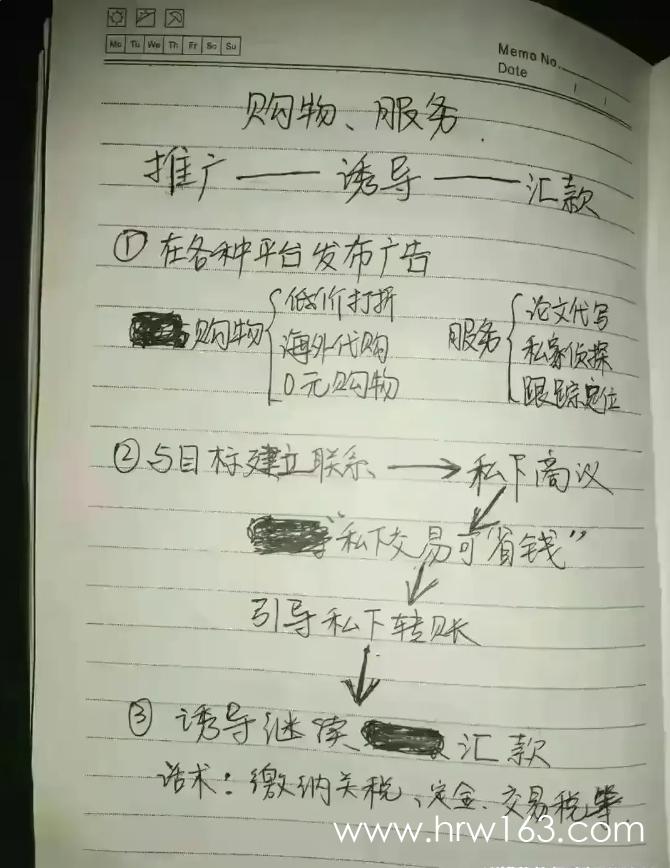 Mo Tu We Th Fr Sa Su
Memo No.
Date
购物、服务
推广——诱导——汇款
① 在各种平台发布广告
购物
低价打折
海外代购
0元购物
服务
论文代写
私家侦探
跟踪定位
② 与目标建立联系 → 私下商议
“私下交易可省钱”
引导私下转账
③ 诱导继续 汇款
话术：缴纳关税、定金、交易税等
www.hrw163.com